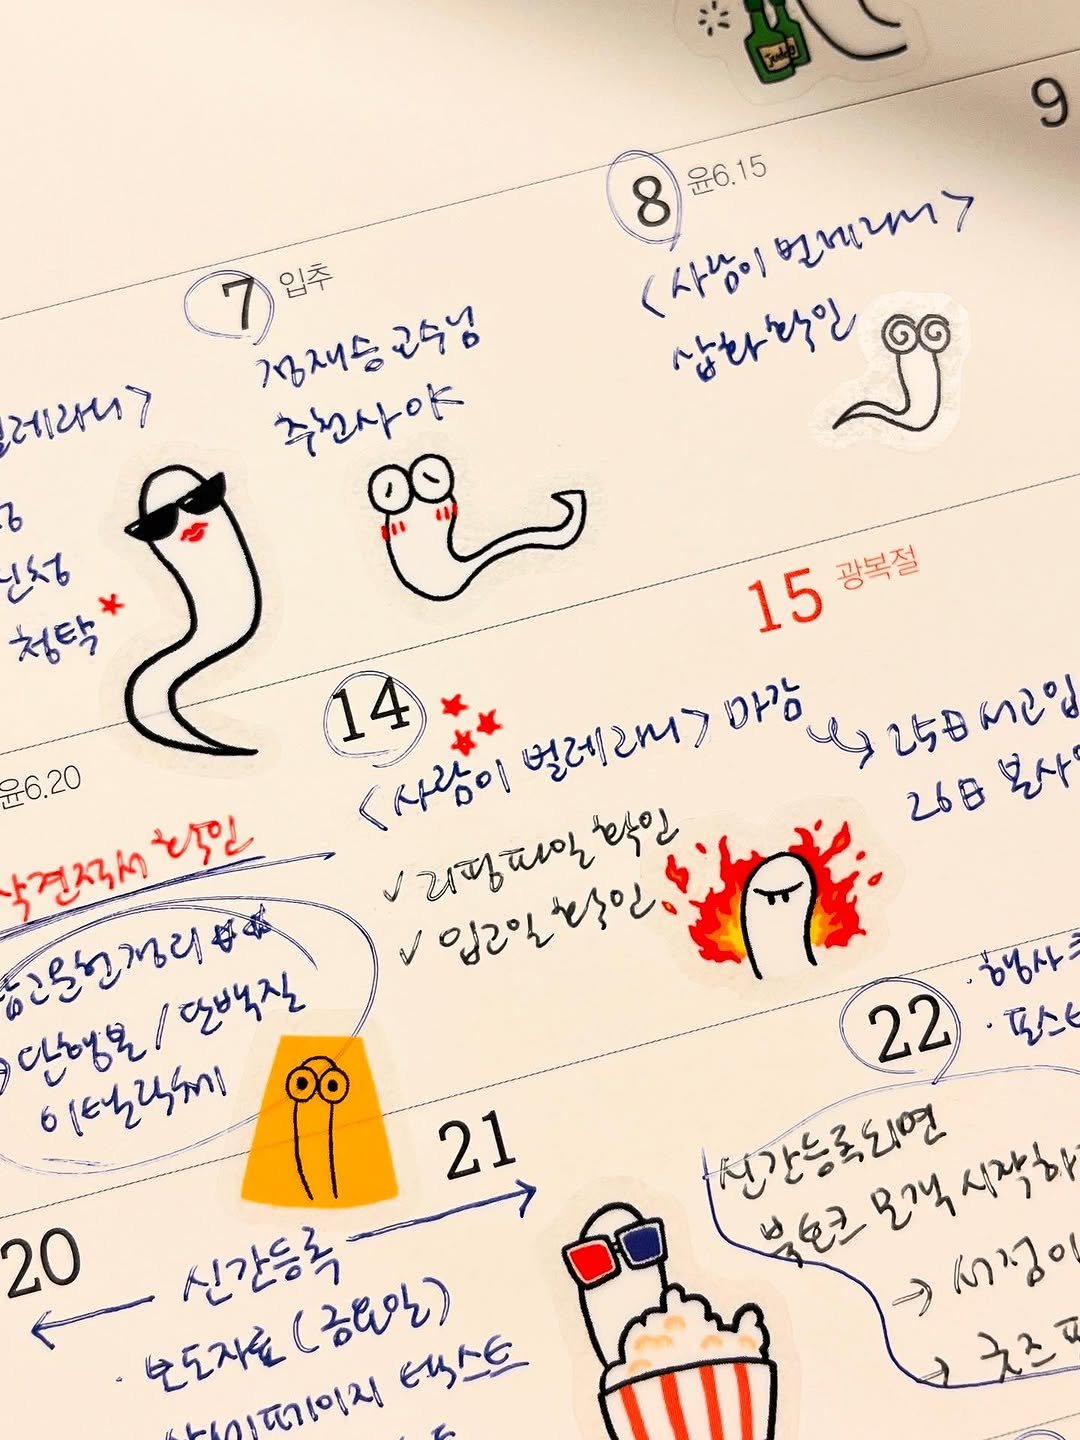 9
8 윤6.15
<사람이 벌레라니>
삽화 확인
7 입추
정재승 교수님
추천사 야
벌레라니>
청탁
15 광복절
14
<사람이 벌레라니> 마감
25日 서고입
26日 본사
✓ 리핑파일 확인
✓ 입고일 확인
윤6.20
견적서 확인
원고 정리
단행본 / 단백질
22
· 행사
· 포스
신간등록되면
북토크 모객 시작하
→ 서점이
→ 굿즈
21
20
신간등록
· 보도자료 (금요일)
상세페이지 텍스트